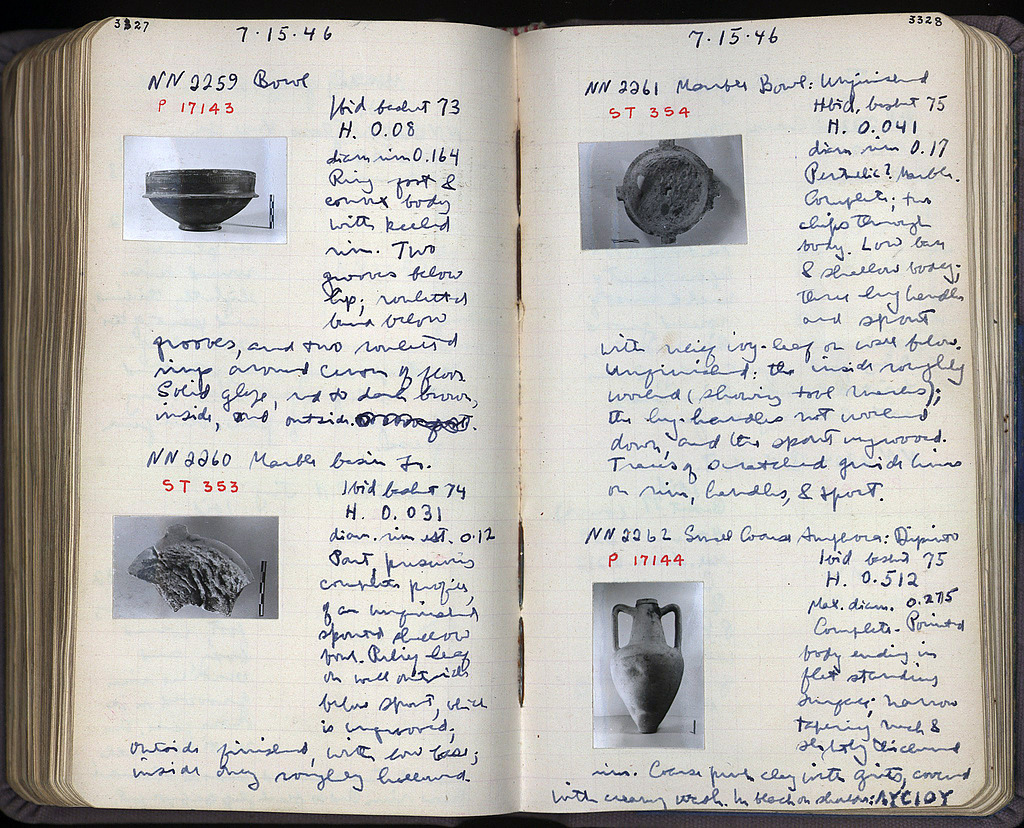 3327
7·15·46
NN 2259 Bowl
P 17143
Ibid basket 73
H. 0.08
diam rim 0.164
Ring foot &
convex body
with keeled
rim. Two
grooves below
lip; rouletted
band below
grooves, and two rouletted
rings around center of floor.
Solid glaze, red to dark brown,
inside, and outside.
NN 2260 Marble basin fr.
ST 353
Ibid basket 74
H. 0.031
diam. rim est. 0.12
Part, preserving
complete profile,
of an unfinished
spouted shallow
bowl. Relief leaf
on wall outside
below spout, which
is ungrooved;
outside finished, with low base;
inside only roughly hollowed.
3328
7·15·46
NN 2261 Marble Bowl: Unfinished
ST 354
Ibid, basket 75
H. 0.041
diam rim 0.17
Pentelic? Marble.
Complete; two
chips through
body. Low base
& shallow body;
three lug handles
and spout
with relief ivy-leaf on wall below.
Unfinished: the inside roughly
worked (showing tool marks);
the lug-handles not worked
down, and the spout ungrooved.
Traces of scratched guide lines
on rim, handles, & spout.
NN 2262 Small Coarse Amphora: Dipinto
P 17144
Ibid basket 75
H. 0.512
Max. diam. 0.275
Complete. Pointed
body ending in
flat standing
surface; narrow
tapering neck &
slightly thickened
rim. Coarse pink clay with grits, covered
with creamy wash. In black on shoulder: ΛYCIOY